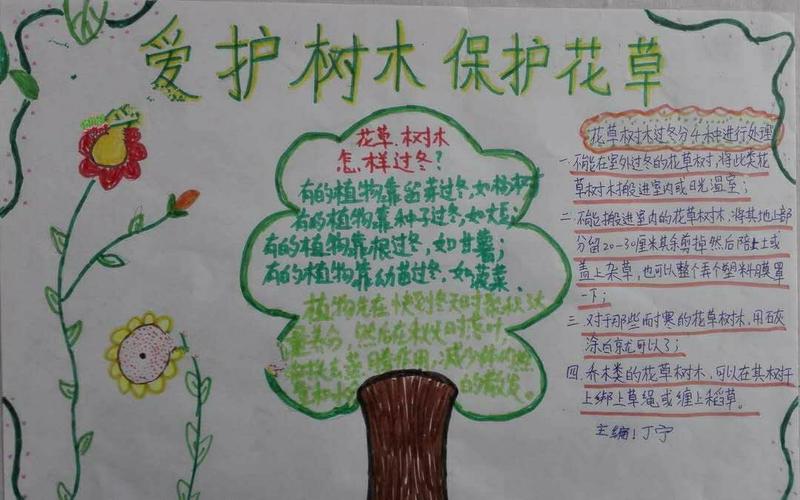 爱护树木 保护花草
花草、树木
怎样过冬?
有的植物靠留芽过冬,如杨树
有的植物靠种子过冬,如大豆;
有的植物靠根过冬,如甘薯;
有的植物靠幼苗过冬,如菠菜.
植物先在快到冬天时
然后在秋天时落叶,
作用,减少
的散发。
花草树木过冬分4种进行处理
一.不能在室外过冬的花草树,将此类花
草树木搬进室内或日光温室;
二.不能搬进室内的花草树木,将其地上部
分留20-30厘米其余剪掉然后陪上土或
盖上杂草,也可以整个弄个塑料膜罩
一下;
三.对于那些耐寒的花草树木,用石灰
涂白就可以了;
四.乔木类的花草树木,可以在其树干
上绑上草绳或缠上稻草。
主编:丁宁